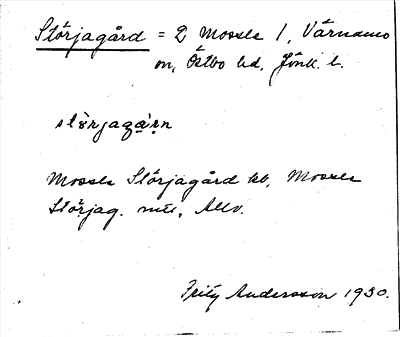 Störjagård = 2 Mossle 1, Värnamo
sn, Östbo hd, Jönk. l.
störjaga̤rn
Mossle Störjagård kb, Mossle
Störjag. mtl, Allv.
Fritz Andersson 1930.